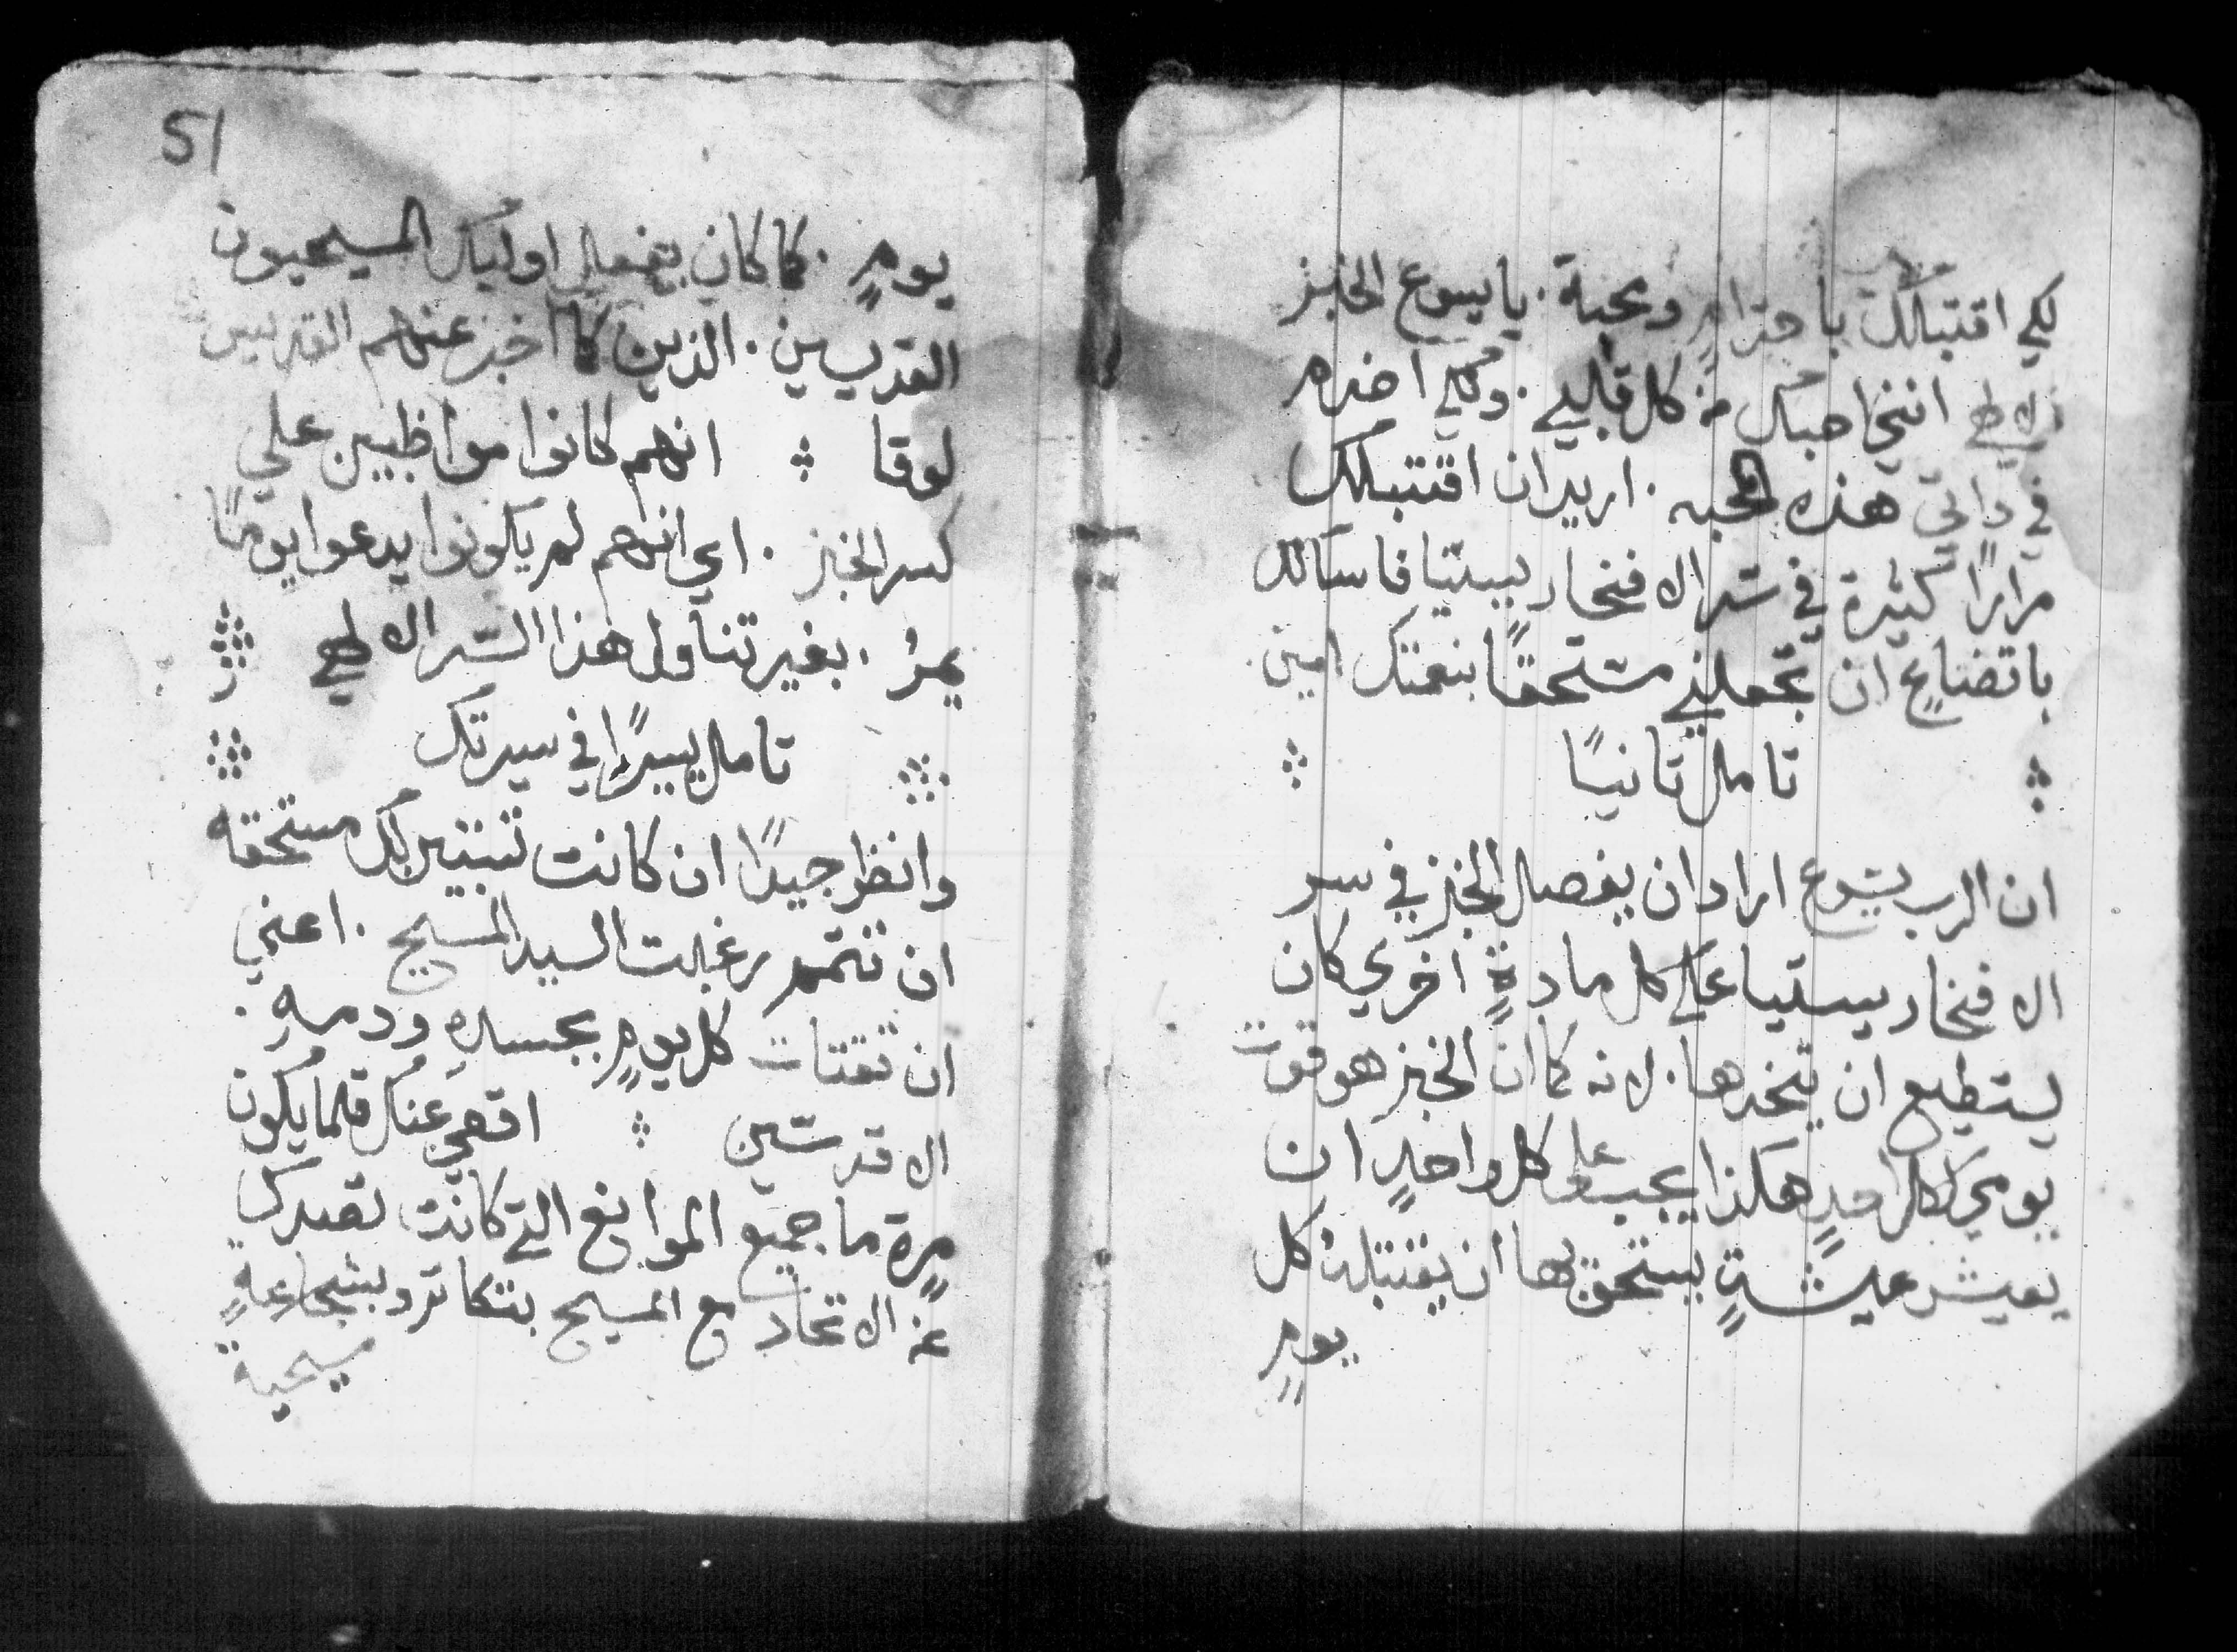 لكي اقتبلك باحترامٍ ومحبة . يا يسوع الخبز
الالهي انني احبك من كل قلبي . ولكي اضرم
في ذاتي هذه المحبه . اريد ان اقتبلك
مرارًا كثيرة في سر الافخارستيا فاسالك
باتضاعٍ ان تجعلني مستحقًا بنعمتك امين
تامل ثانيًا
ان الرب يسوع اراد ان يفصل الخبز في سر
الافخاريستيا علي كل مادةٍ اخري كان
يستطيع ان يتخدها . لانه كما ان الخبز هو قوت
يومي لكل احدٍ هكذا يجب علي كل واحدٍ ان
يعيش عيشةٍ يستحق بها ان يقتبله كل
يومٍ
51
يومٍ . كما كان يفعل اوليك المسيحيون
القديسين . الذين كما اخبر عنهم القديس
لوقا ۞ انهم كانوا مواظبين علي
كسر الخبز . اي انهم لم يكونوا يدعوا يومًا
يمرُ . بغير تناول هذا السر الالهي
تامل يسيرًا في سيرتك
وانظر جيدًا ان كانت تبتير بك مستحقه
ان تتمم رغبت السيد المسيح . اعني
ان تقتات كل يومٍ بجسدهِ ودمهِ .
الاقدسين ۞ اقصي عنك قلما يكون
مرةٍ ما جميع الموانع التي كانت تصدك
عن الاتحاد مع المسيح بتكاثر وبشجاعةٍ
مسيحية